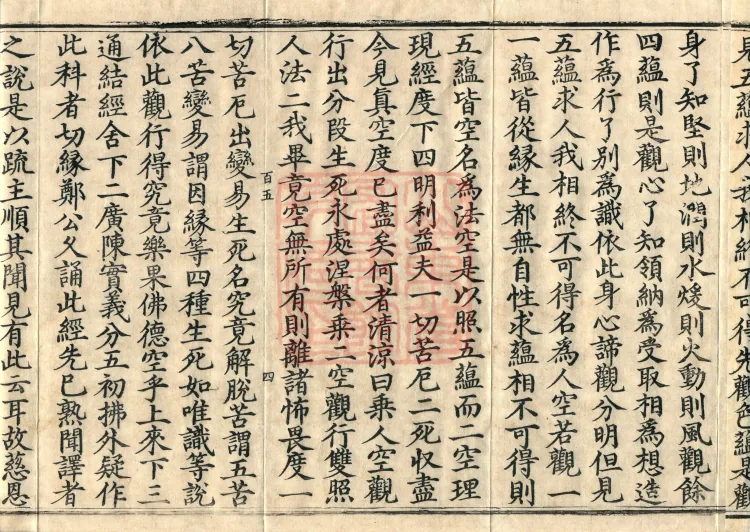 見五蘊求人我相終不可得先觀色蘊是觀
身了知堅則地潤則水煖則火動則風觀餘
四蘊則是觀心了知領納為受取相為想造
作為行了別為識依此身心諦觀分明但見
五蘊求人我相終不可得名為人空若觀一
一蘊皆從緣生都無自性求蘊相不可得則
五蘊皆空名為法空是以照五蘊而二空理
現經度下四明利益夫一切苦厄二死収盡
今見真空度已盡矣何者清涼曰乗人空觀
行出分段生死永處涅槃乗二空觀行雙照
人法二我畢竟空無所有則離諸怖畏度一
百五
四
切苦厄出變易生死名究竟解脫苦謂五苦
八苦變易謂因緣等四種生死如唯識等說
依此觀行得究竟樂果佛德空乎上來下三
通結經舍下二廣陳實義分五初拂外疑作
此科者切緣鄭公久誦此經先已熟聞譯者
之說是以疏主順其聞見有此云耳故慈恩